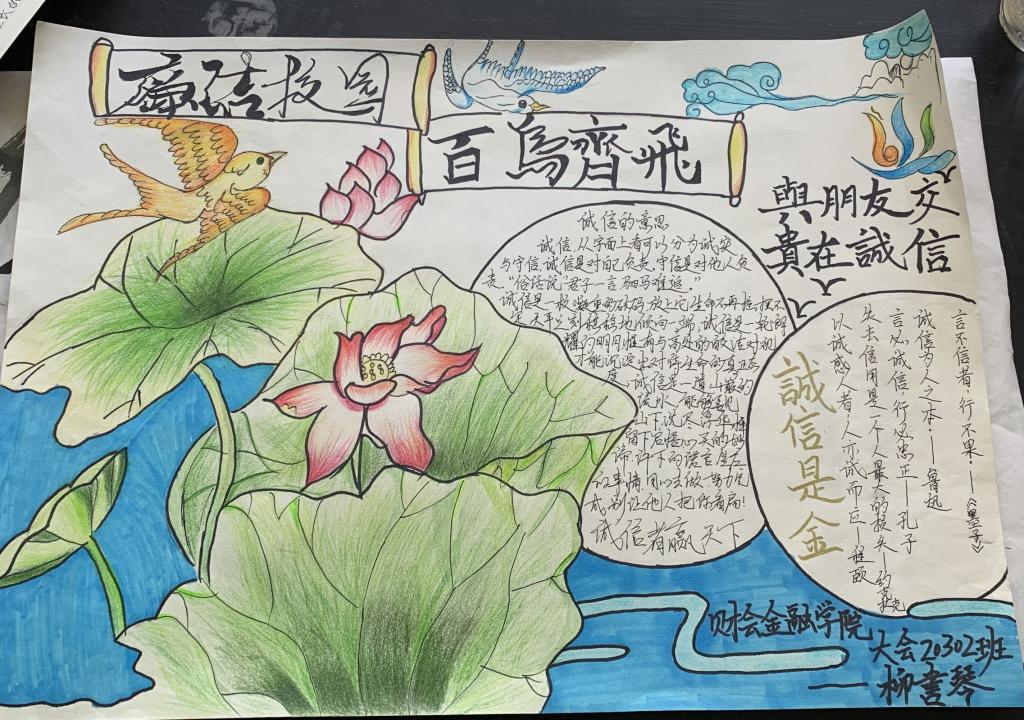 廉洁校园
百鳥齊飛
與朋友交
貴在誠信
诚信的意思
诚信,从字面上看可以分为诚实
与守信,诚信是对自己负责,守信是对他人负
责。"俗话说"君子一言驷马难追。"
诚信是一枚凝重的砝码,放上它生命不再摇摆不
定,天平立刻稳稳地倾向一端,诚信是一轮明
耀的明月,惟有与高处的皎洁对视
才能沉淀出对待生命的真正态
度,诚信是一道山巅的
流水,能够
山下,洗尽浮华
留下启悟心灵的妙
谛,许下的诺言是
事情,用心去做,努力完
成,别让他人把你看扁!
诚信者赢天下
誠信是金
言不信者,行不果。——《墨子》
诚信为人之本。——鲁迅
言必诚信,行必忠正——孔子
失去信用是一个人最大的损失——
以诚感人者,人亦诚而应——程颐
财会金融学院
大会20302班
——柳書琴